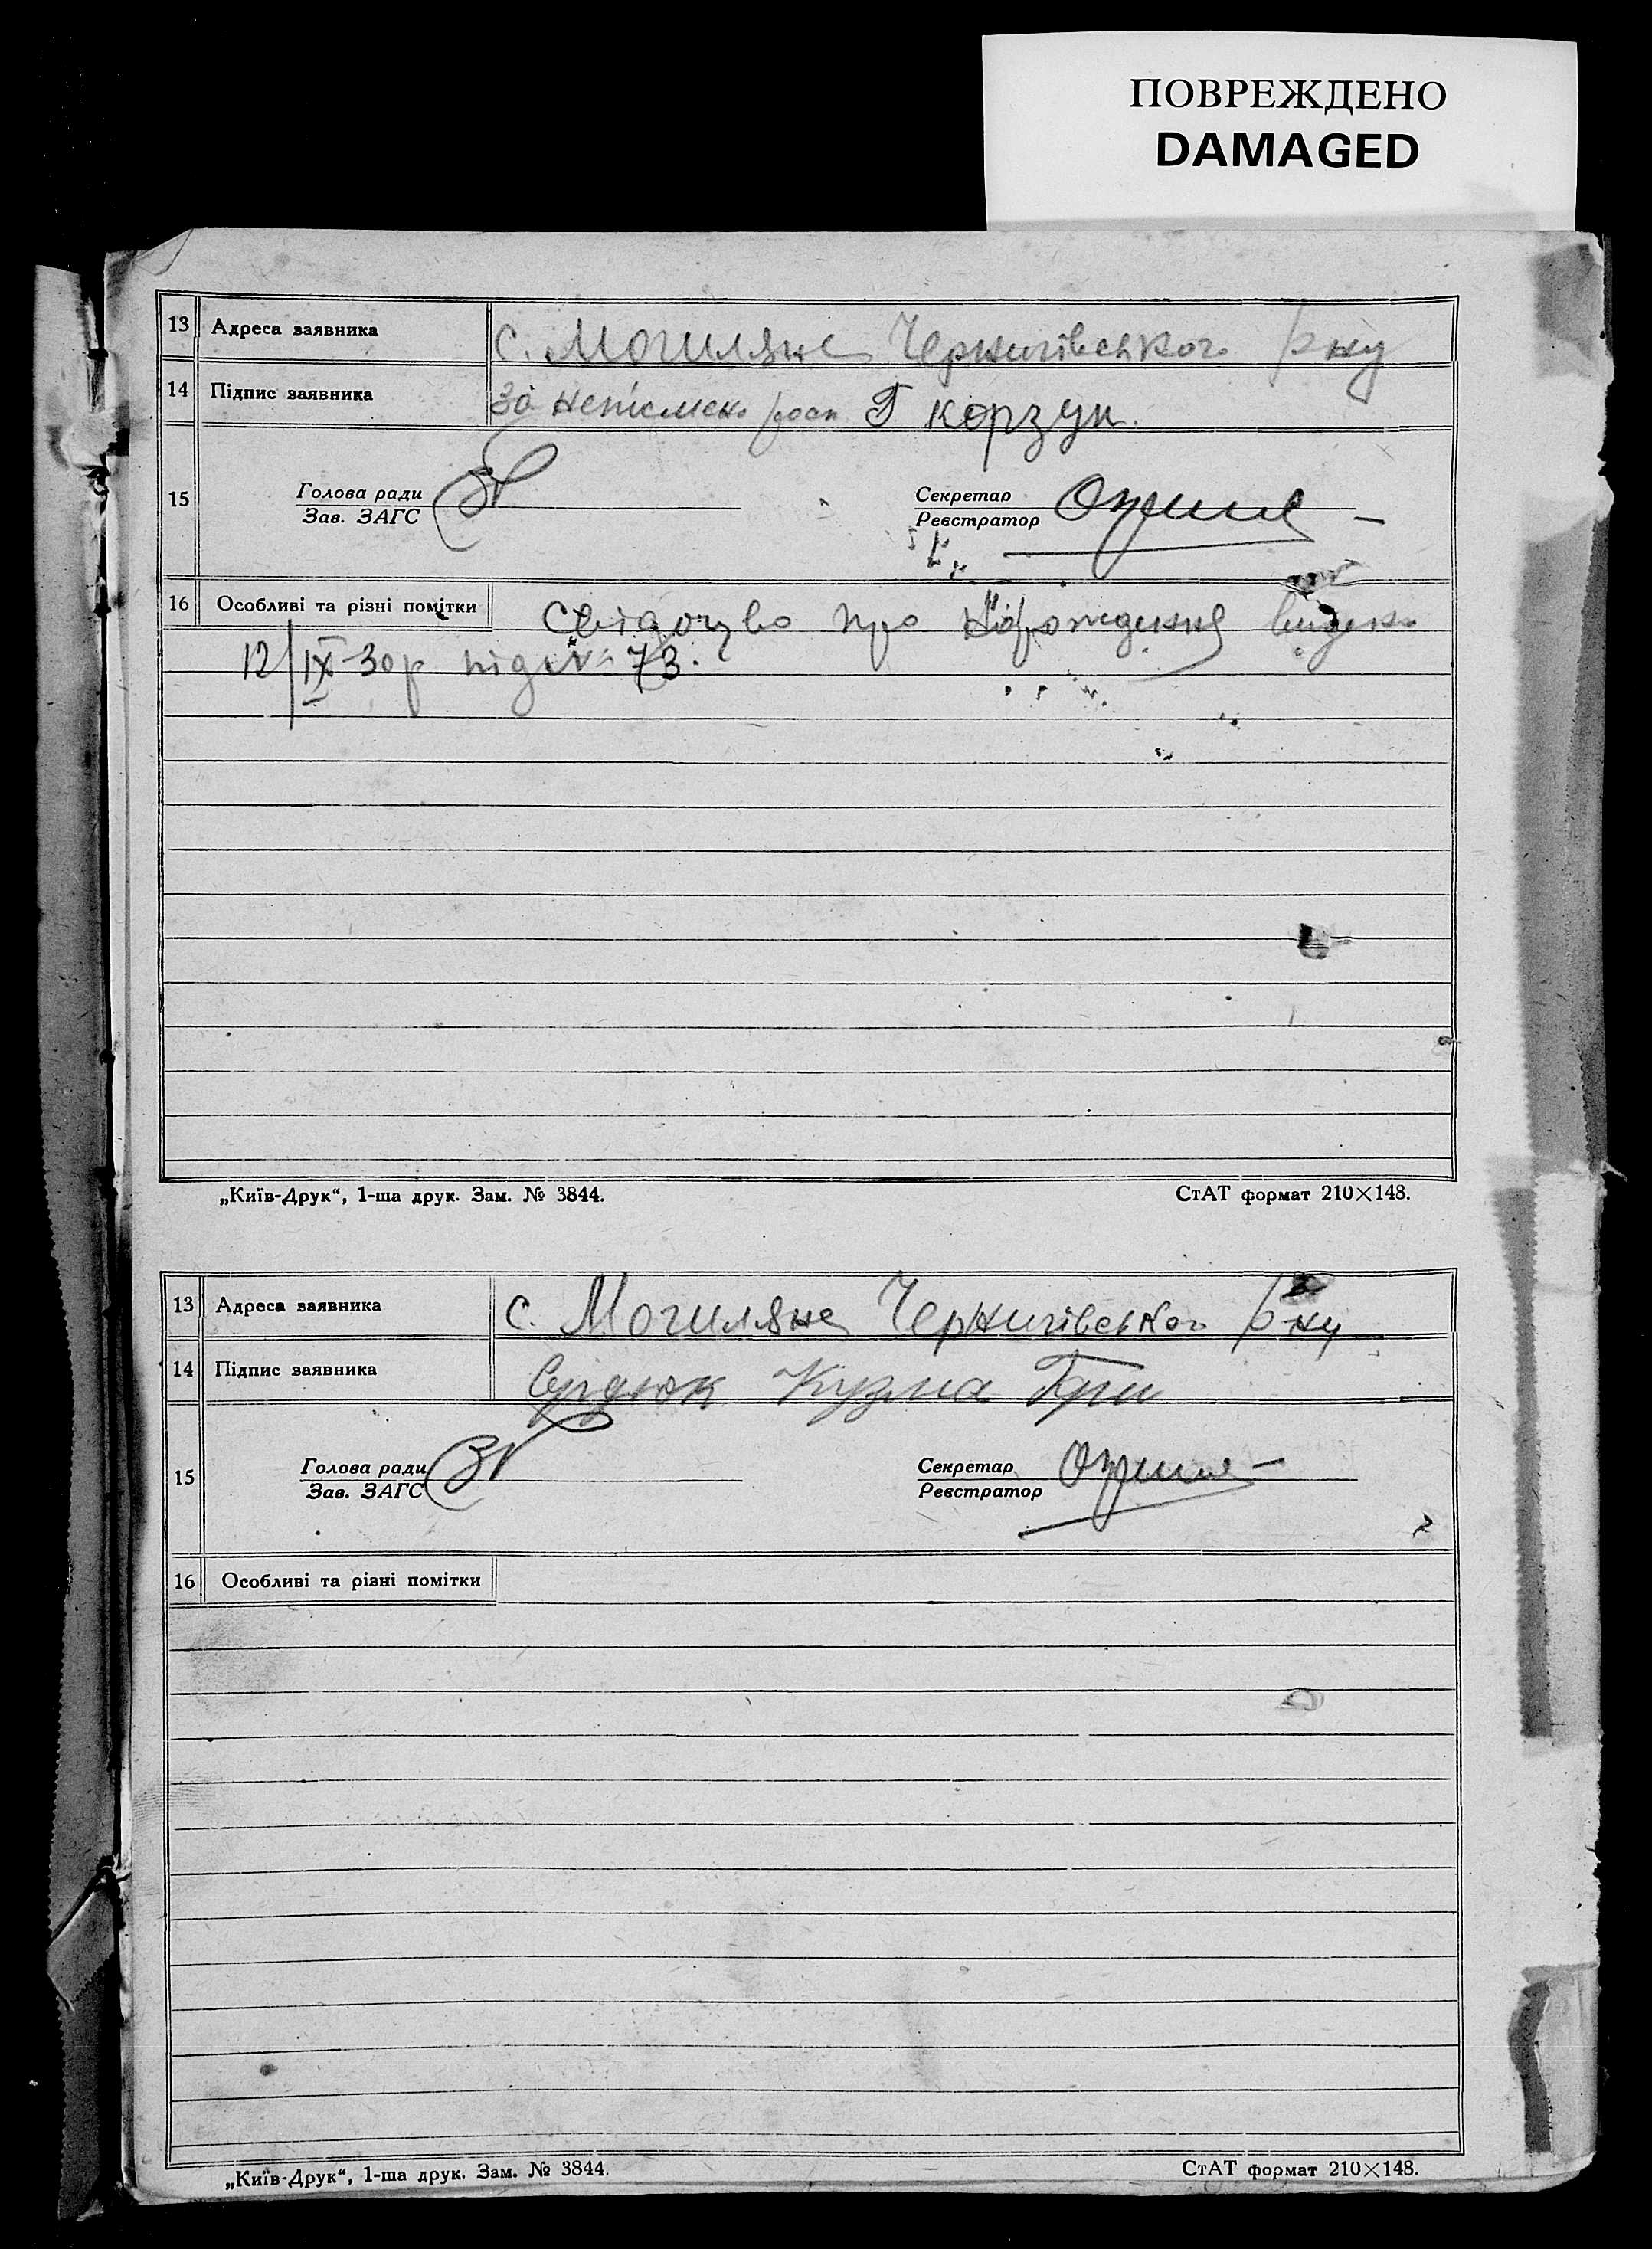 ПОВРЕЖДЕНО
DAMAGED
13 Адреса заявника с. Могиляне Чернигівського р-ну
14 Підпис заявника за неписмен. росп Г корзун.
15 Голова ради Секретар
Зав. ЗАГС Реєстратор
16 Особливі та різні помітки Свідоцтво про народження видано
12/IX-30р під № 73.
„Київ-Друк“, 1-ша друк. Зам. № 3844. СтАТ формат 210×148.
13 Адреса заявника с. Могиляне Чернигівського р-ну
14 Підпис заявника Сердюк Кузма Гри
15 Голова ради Секретар
Зав. ЗАГС Реєстратор
16 Особливі та різні помітки
„Київ-Друк“, 1-ша друк. Зам. № 3844. СтАТ формат 210×148.